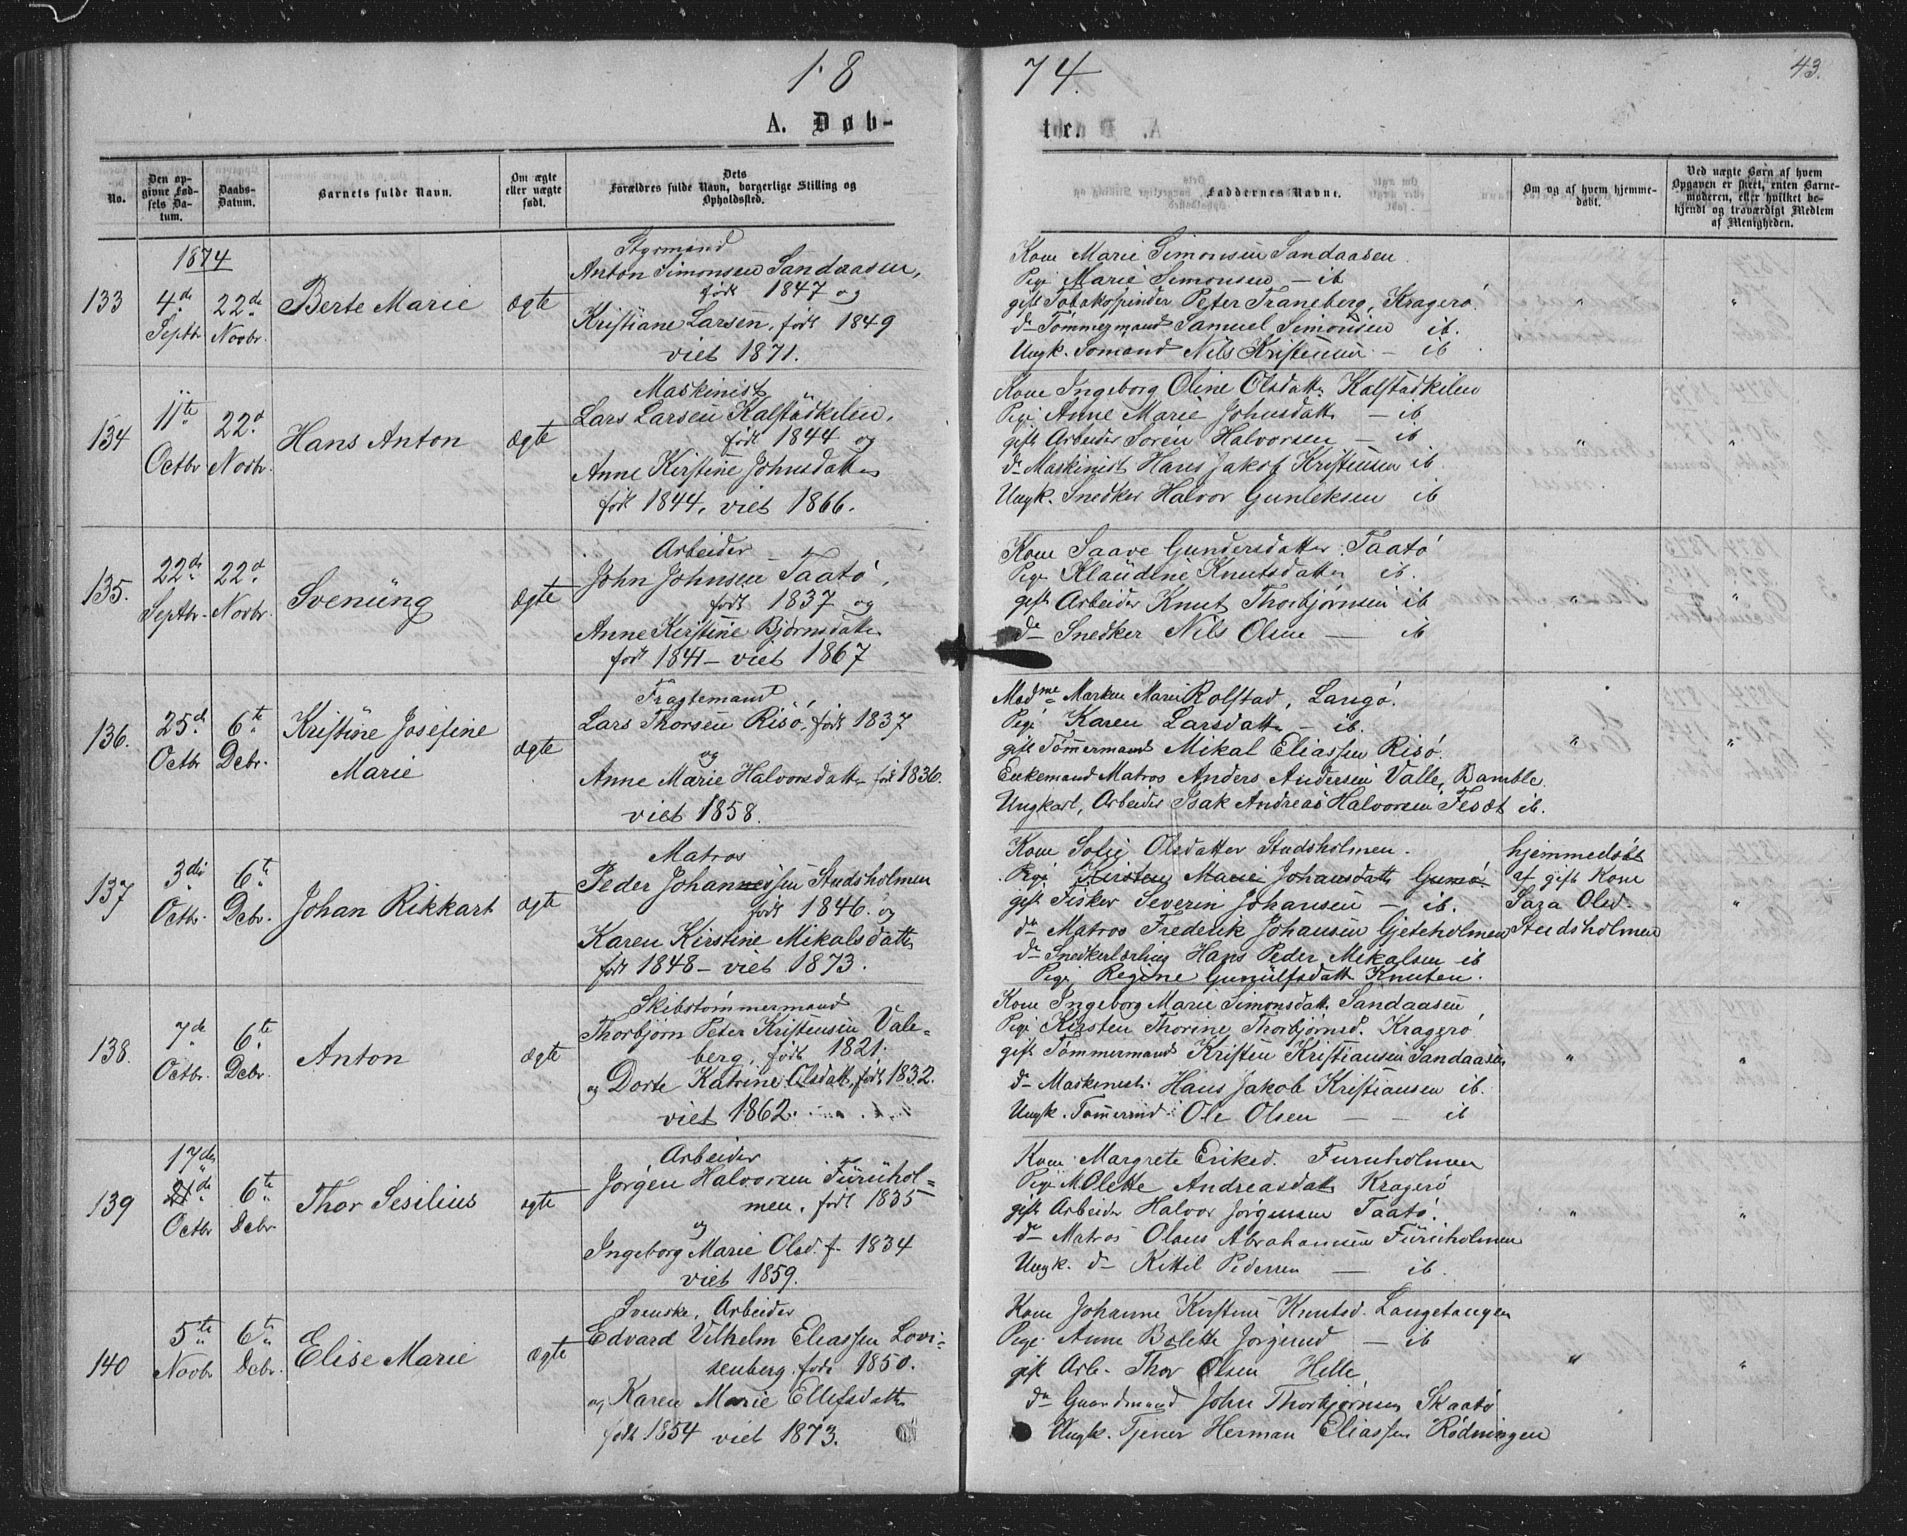 1.8
A. Døb-
No.
Den op-
givne Fød-
sels Da-
tum.
Daabs-
Datum.
Barnets fulde Navn.
Om ægte
eller uægte
født.
Dets
Forældres fulde Navn, borgerlige Stilling og
Opholdssted.
1874
133
4de
Septbr
22de
Novbr.
Berte Marie
ægte
Styrmand
Anton Simonsen Sandaasen,
født 1847 og
Kristiane Larsen, født 1849
viet 1871.
134
11te
Octbr
22d.
Novbr.
Hans Anton
ægte
Maskinist
Lars Larsen Kalstadkilen,
født 1844 og
Anne Kirstine Johnsdatte
født 1844, viet 1866.
135.
22de
Septbr.
22d.
Novbr.
Svenüng
ægte
Arbeider
John Johnsen Taatø,
født 1837 og
Anne Kirstine Bjørnsdatte
født 1841 – viet 1867
136.
25d.
Octbr
6te
Dcbr.
Kristine Josefine
Marie
ægte
Fragtemand
Lars Thorsen Risø, født 1837
og
Anne Marie Halvorsdatte født 1836.
viet 1858.
137
3die
Octbr.
6te
Dcbr.
Johan Rikkart
ægte
Matros
Peder Johannessen Studsholmen
født 1846. og
Karen Kirstine Mikalsdatte
født 1848 – viet 1873.
138.
7de
Octbr.
6te
Dcbr.
Anton
ægte
Skibstømmermand
Thorbjørn Peter Kristensen Vale-
berg, født 1821.
og Dorte Katrine Olsdatt, født 1832.
viet 1862.
139
17de
21de
Octbr
6te
Dcbr
Thor Sesilius
ægte
Arbeider
Jørgen Halvorsen Füruhol-
men, født 1835
og
Ingeborg Marie Olsd. f. 1834
viet 1859.
140
5te
Novbr
6te
Dcbr.
Elise Marie
ægte
Svenske, Arbeider
Edvard Vilhelm Eliassen Lovi-
senberg. født 1850.
og Karen Marie Ellefsdatte
født 1854 viet 1873.
74.
43.
te.
Faddernes Navne.
Om og af hvem hjemme-
døbt.
Ved uægte Børn af hvem
Opgaven er skeet, enten Barne-
moderen, eller hvilket be-
kjendt og troværdigt Medlem
af Menigheden.
Kone Marie Simonsen Sandaasen.
Pige Marie Simonsen – ib
gift Tobakspinder Peter Traneberg, Kragerø
do Tømmermand Samuel Simonsen ib.
Ungk. Sømand Nils Kristensen – ib
" "
Kone Ingeborg Oline Olsdatt. Kalstadkilen
Pige Anne Marie Johnsdatt – ib
gift Arbeider Søren Halvorsen – ib
do Maskinist Hans Jakob Kristensen ib.
Ungk. Snedker Halvor Gunleksen ib
" "
Kone Saave Gundersdatter Taatø
Pige Klaudine Knutsdatte ib.
gift Arbeider Knut Thorbjørnsen ib
do Snedker Nils Olsen — ib
" "
Madme Marken Marie Rolfstad, Langø.
Pige Karen Larsdatt – ib.
gift Tømmermand Mikal Eliassen Risø.
Enkemand Matros Anders Andersen Valle, Bamble
Ungkarl, Arbeider Isak Andreas Halvorsen Fesæt ib.
" "
Kone Sofie Olsdatter Studsholmen.
Pige Kirsten Marie Johansdatt Gumø.
gift Fisker Severin Johansen – ib.
do Matros Frederik Johansen Gjeteholmen
do Snedkerlærling Hans Peder Mikalsen ib
Pige Regine Gunnülfsdatt Knuten.
hjemmedøbt
af gift Kone
Saza Olsd.
Studsholmen
"
Kone Ingeborg Marie Simonsdatt. Sandaasen
Pige Kirsten Thorine Thorbjørnsd. Kragerø
gift Tømmermand Kristen Kristiansen Sandaasen
do Maskinist. Hans Jakob Kristiansen ib.
Ungk. Tømermd Ole Olsen — — ib
" "
Kone Margrete Eriksd. Furuholmen
Pige M Olette Andreasdatt Kragerø
gift Arbeider Halvor Jørgensen Taatø.
do Matros Olaus Abrahamsen Füruholmen
Ungk. do Kittil Pedersen — ib.
" "
Kone Johanne Kirstine Knutsd. Langetangen
Pige Anne Bolette Jørgensd — ib
gift Arb. Thor Olsen Helle,
do Gaardmand John Thorbjørnsen Skaatø
Ungk. Tjener Herman Eliassen Rødningen
" "